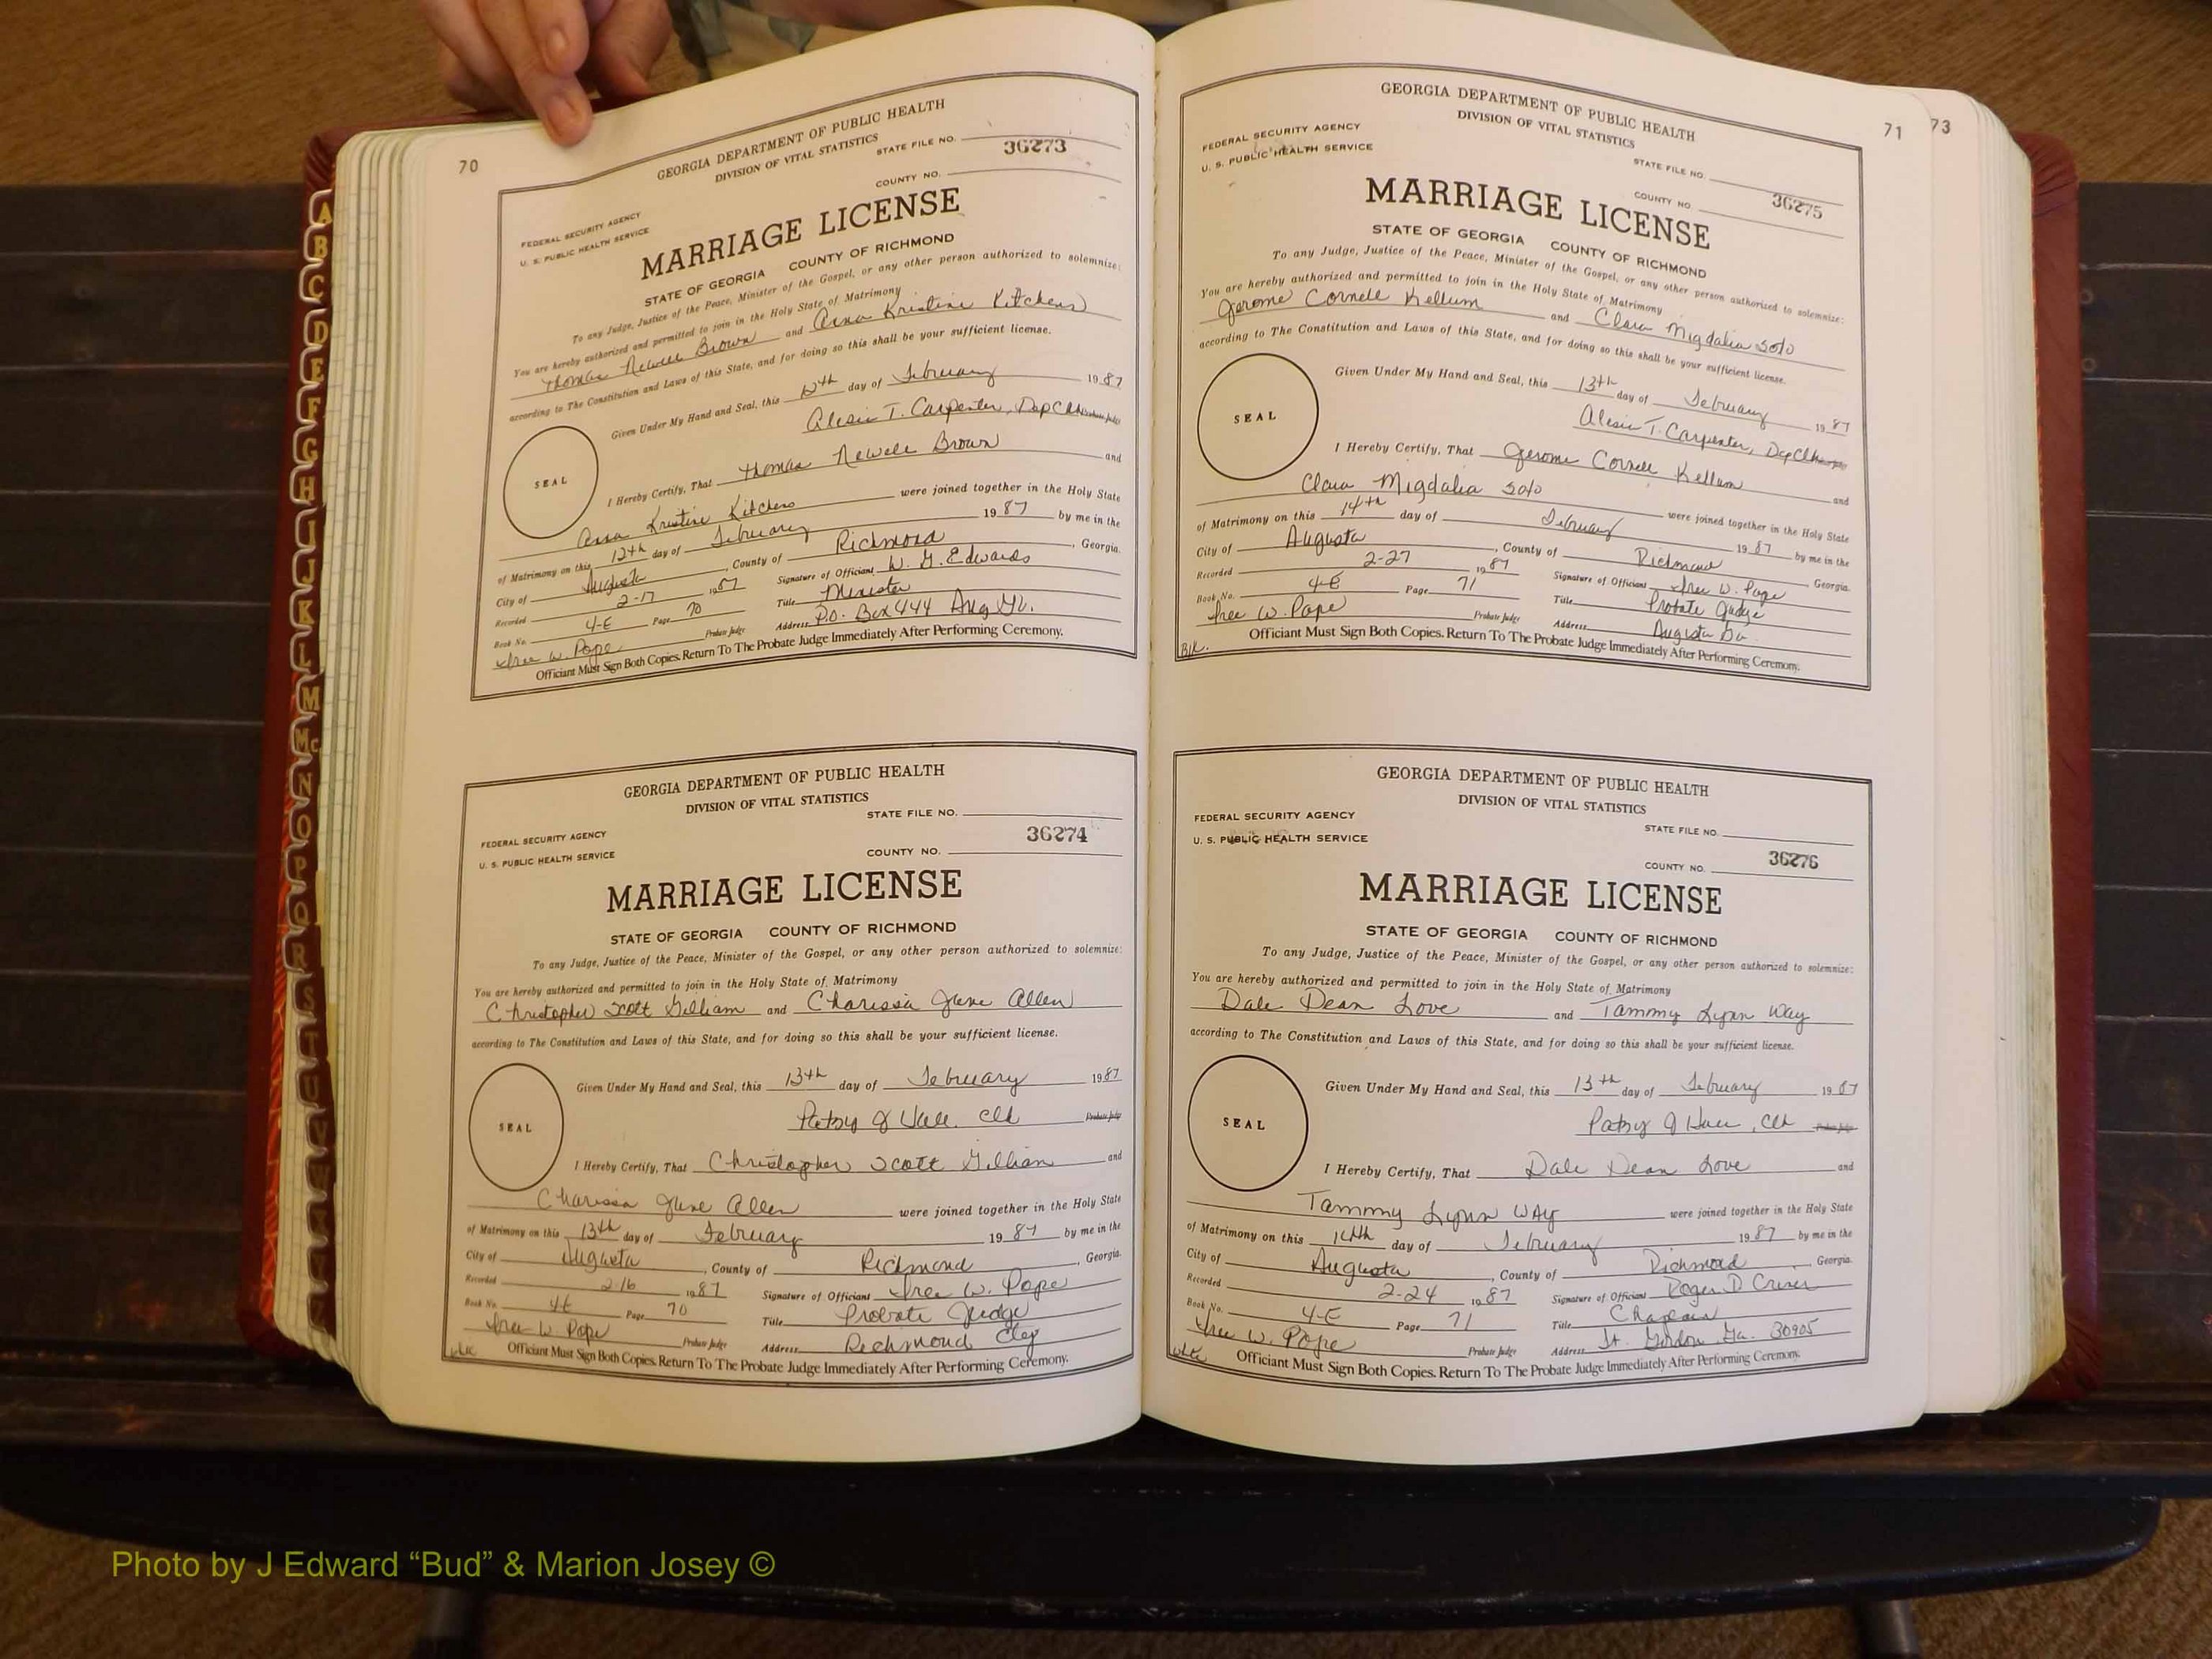 70
GEORGIA DEPARTMENT OF PUBLIC HEALTH
DIVISION OF VITAL STATISTICS
STATE FILE NO.
36273
COUNTY NO.
FEDERAL SECURITY AGENCY
U. S. PUBLIC HEALTH SERVICE
MARRIAGE LICENSE
STATE OF GEORGIA COUNTY OF RICHMOND
To any Judge, Justice of the Peace, Minister of the Gospel, or any other person authorized to solemnize:
You are hereby authorized and permitted to join in the Holy State of Matrimony
Thomas Newell Brown and Anna Kristine Kitchens
according to The Constitution and Laws of this State, and for doing so this shall be your sufficient license.
SEAL
Given Under My Hand and Seal, this 12th day of February 1987
Alesia T. Carpenter, Dep Clk Probate Judge
I Hereby Certify, That Thomas Newell Brown and
Anna Kristine Kitchens were joined together in the Holy State
of Matrimony on this 12th day of February 1987 by me in the
City of Augusta, County of Richmond, Georgia.
Recorded 2-17 1987 Signature of Officiant W. G. Edwards
Book No. 4-E Page 70 Title Minister
Probate Judge Address P.O. Box 444 Aug Ga.
Officiant Must Sign Both Copies. Return To The Probate Judge Immediately After Performing Ceremony.
GEORGIA DEPARTMENT OF PUBLIC HEALTH
DIVISION OF VITAL STATISTICS
STATE FILE NO.
36274
FEDERAL SECURITY AGENCY
U. S. PUBLIC HEALTH SERVICE
COUNTY NO.
MARRIAGE LICENSE
STATE OF GEORGIA COUNTY OF RICHMOND
To any Judge, Justice of the Peace, Minister of the Gospel, or any other person authorized to solemnize:
You are hereby authorized and permitted to join in the Holy State of Matrimony
Christopher Scott Gilliam and Charissa June Allen
according to The Constitution and Laws of this State, and for doing so this shall be your sufficient license.
SEAL
Given Under My Hand and Seal, this 13th day of February 1987
Patsy J Hall, Clk Probate Judge
I Hereby Certify, That Christopher Scott Gilliam and
Charissa June Allen were joined together in the Holy State
of Matrimony on this 13th day of February 1987 by me in the
City of Augusta, County of Richmond, Georgia.
Recorded 2-16 1987 Signature of Officiant W. Pope
Book No. 4E Page 70 Title Probate Judge
W. Pope Probate Judge Address Richmond Cty
Officiant Must Sign Both Copies. Return To The Probate Judge Immediately After Performing Ceremony.
71
73
GEORGIA DEPARTMENT OF PUBLIC HEALTH
DIVISION OF VITAL STATISTICS
FEDERAL SECURITY AGENCY
U. S. PUBLIC HEALTH SERVICE
STATE FILE NO.
COUNTY NO
36275
MARRIAGE LICENSE
STATE OF GEORGIA COUNTY OF RICHMOND
To any Judge, Justice of the Peace, Minister of the Gospel, or any other person authorized to solemnize:
You are hereby authorized and permitted to join in the Holy State of Matrimony
Jerome Cornell Kellum and Clara Migdalia Soto
according to The Constitution and Laws of this State, and for doing so this shall be your sufficient license.
SEAL
Given Under My Hand and Seal, this 13th day of February 1987
Alesia T. Carpenter, Dep Clk
I Hereby Certify, That Jerome Cornell Kellum and
Clara Migdalia Soto were joined together in the Holy State
of Matrimony on this 14th day of February 1987 by me in the
City of Augusta, County of Richmond Georgia.
Recorded 2-27 1987 Signature of Officiant W. Pope
Book No. 4-E Page 71 Title Probate Judge
W. Pope Probate Judge Address Augusta Ga
Officiant Must Sign Both Copies. Return To The Probate Judge Immediately After Performing Ceremony.
GEORGIA DEPARTMENT OF PUBLIC HEALTH
DIVISION OF VITAL STATISTICS
FEDERAL SECURITY AGENCY
U. S. PUBLIC HEALTH SERVICE
STATE FILE NO.
COUNTY NO.
36276
MARRIAGE LICENSE
STATE OF GEORGIA COUNTY OF RICHMOND
To any Judge, Justice of the Peace, Minister of the Gospel, or any other person authorized to solemnize:
You are hereby authorized and permitted to join in the Holy State of Matrimony
Dale Dean Love and Tammy Lynn Way
according to The Constitution and Laws of this State, and for doing so this shall be your sufficient license.
SEAL
Given Under My Hand and Seal, this 13th day of February 1987
Patsy J Hall, Clk
I Hereby Certify, That Dale Dean Love and
Tammy Lynn WAy were joined together in the Holy State
of Matrimony on this 14th day of February 1987 by me in the
City of Augusta, County of Richmond, Georgia.
Recorded 2-24 1987 Signature of Officiant Roger D
Book No. 4-E Page 71 Title Chaplain
W. Pope Probate Judge Address Ft. Gordon Ga. 30905
Officiant Must Sign Both Copies. Return To The Probate Judge Immediately After Performing Ceremony.
A
B
C
D
E
F
G
H
I
J
K
L
M
Mc
N
O
P
Q
R
S
Photo by J Edward “Bud” & Marion Josey ©